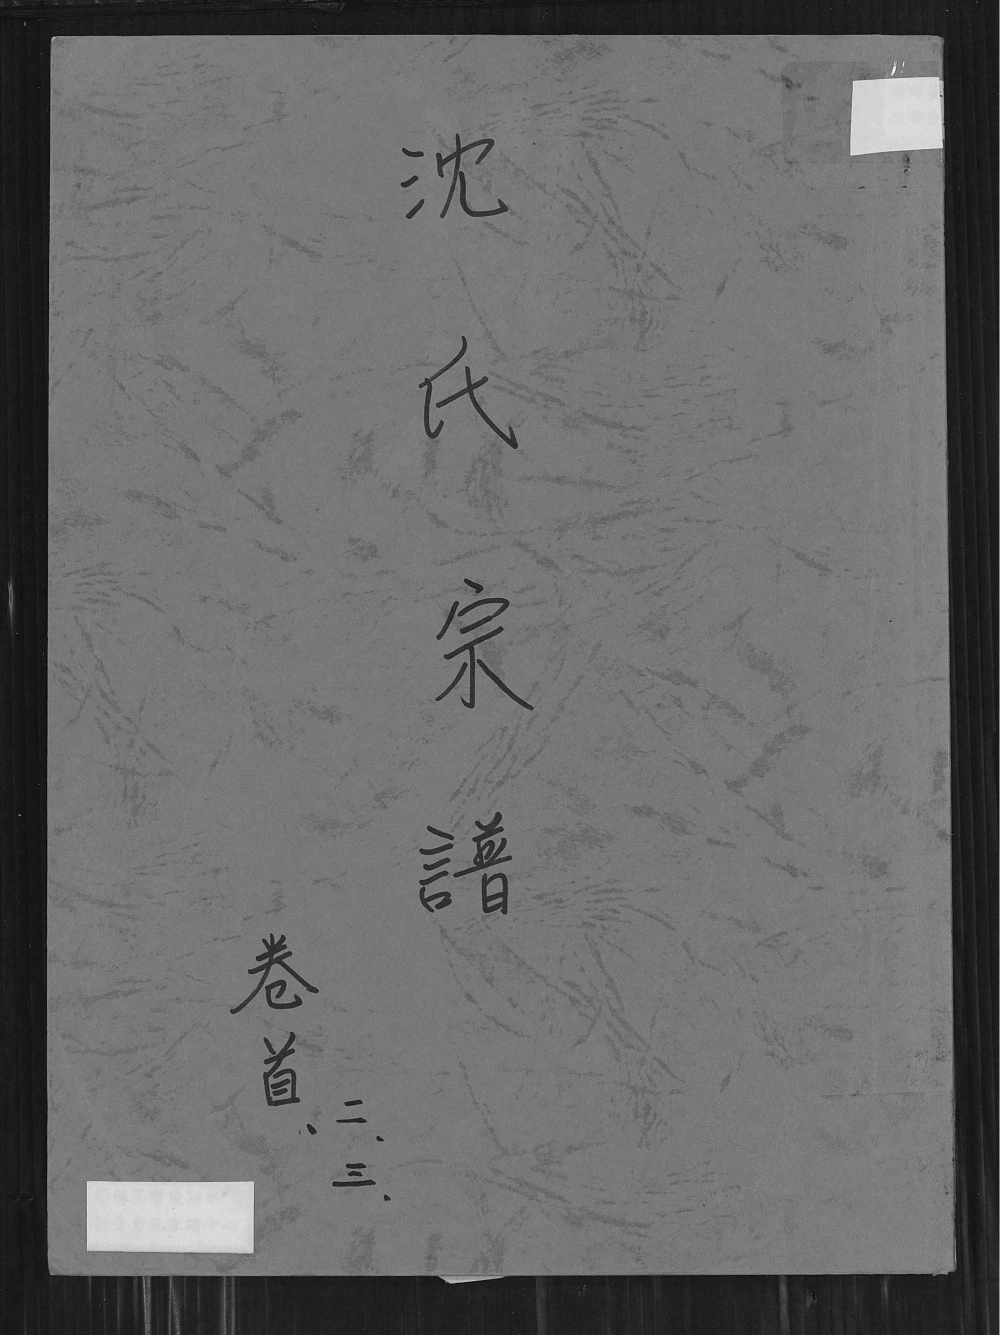 沈氏宗譜
卷首、
二、三、